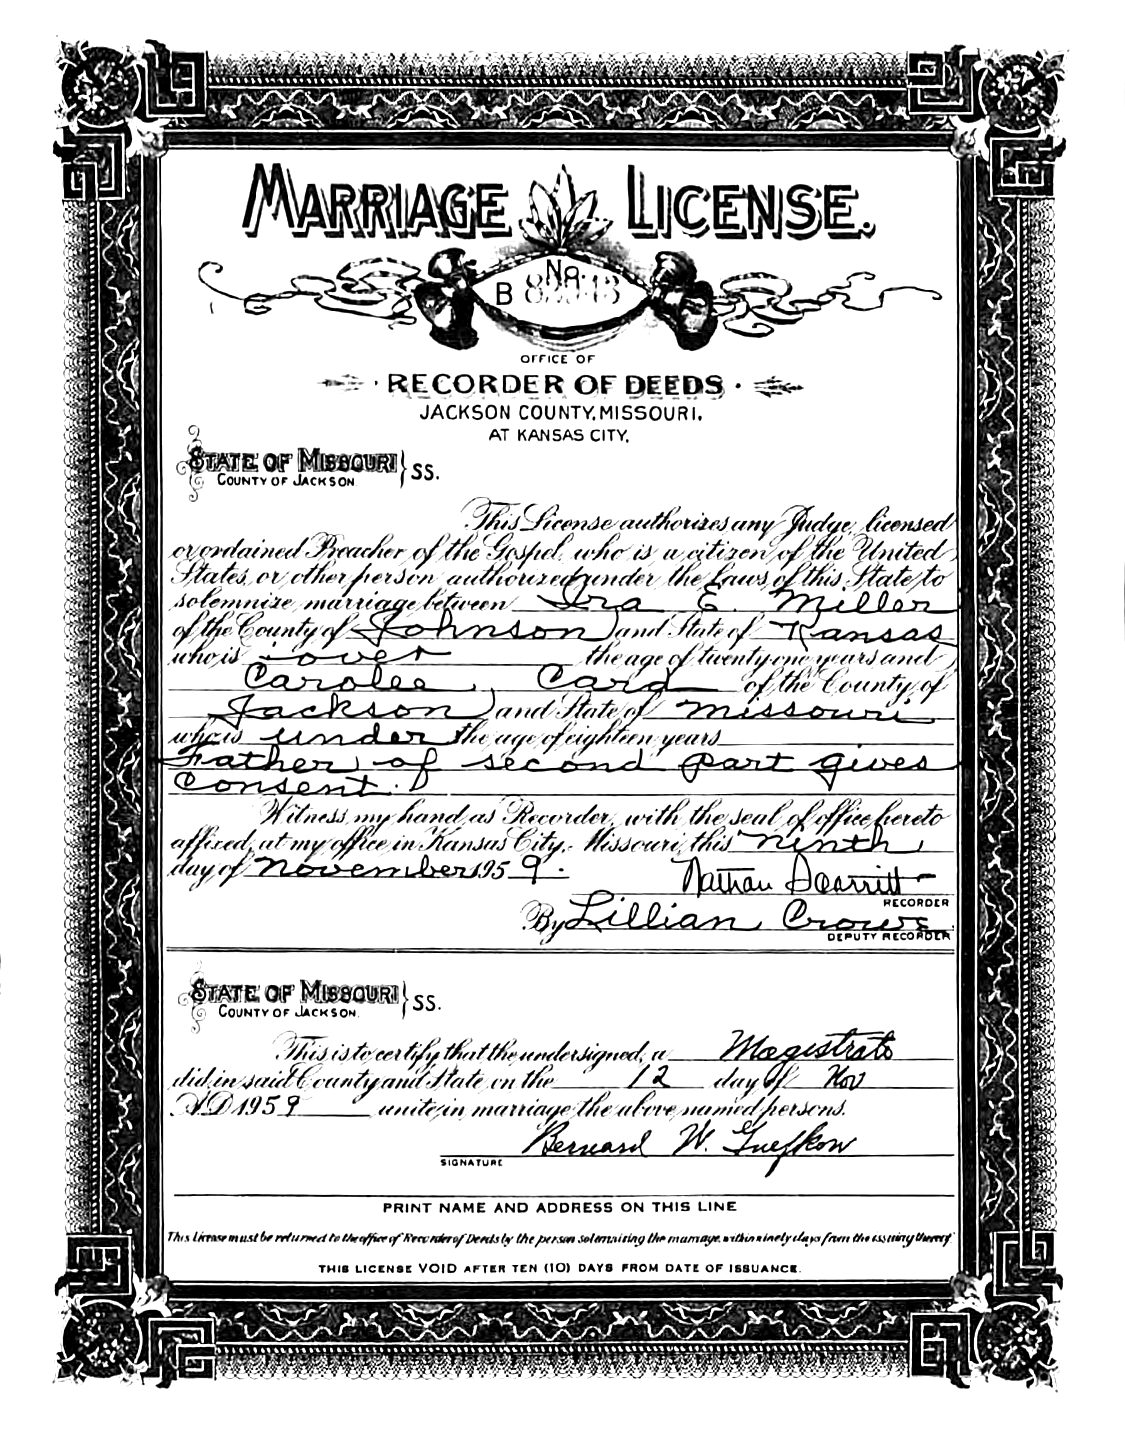 MARRIAGE LICENSE.
No.
B
OFFICE OF
RECORDER OF DEEDS
JACKSON COUNTY, MISSOURI,
AT KANSAS CITY.
STATE OF MISSOURI } SS.
COUNTY OF JACKSON
This License authorizes any Judge, licensed
or ordained Preacher of the Gospel, who is a citizen of the United
States, or other person authorized under the Laws of this State, to
solemnize marriage between Ira E. Miller
of the County of Johnson and State of Kansas
who is over the age of twenty one years and
Carolee Card of the County of
Jackson and State of Missouri
who is under the age of eighteen years
Father of second part gives
Consent.
Witness my hand as Recorder, with the seal of office hereto
affixed, at my office in Kansas City, Missouri, this ninth
day of November 1959.
Nathan Scarritt
RECORDER
By Lillian
DEPUTY RECORDER
STATE OF MISSOURI } SS.
COUNTY OF JACKSON.
This is to certify that the undersigned, a Magistrate
did in said County and State, on the 12 day of Nov
A.D. 1959 unite in marriage the above named persons.
Bernard W.
SIGNATURE
PRINT NAME AND ADDRESS ON THIS LINE
This License must be returned to the office of Recorder of Deeds by the person solemnizing the marriage, within ninety days from the issuing thereof.
THIS LICENSE VOID AFTER TEN (10) DAYS FROM DATE OF ISSUANCE.